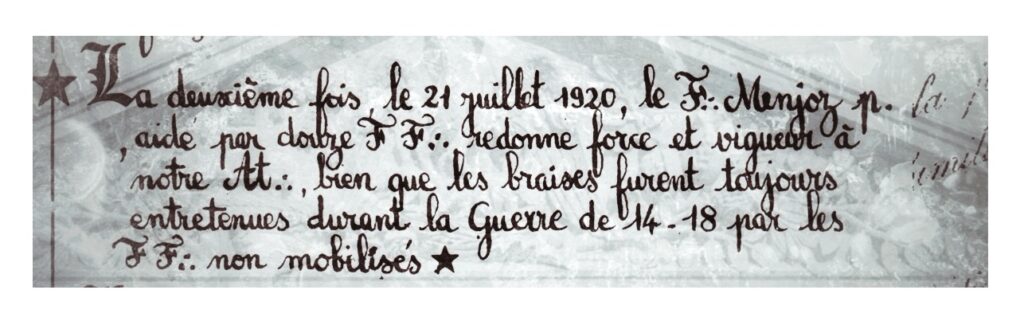 La deuxième fois, le 21 juillet 1920, le F∴ Menjoz p.
, aidé par douze F F∴ redonne force et vigueur à
notre At∴, bien que les braises furent toujours
entretenues durant la Guerre de 14-18 par les
F F∴ non mobilisés ★
la